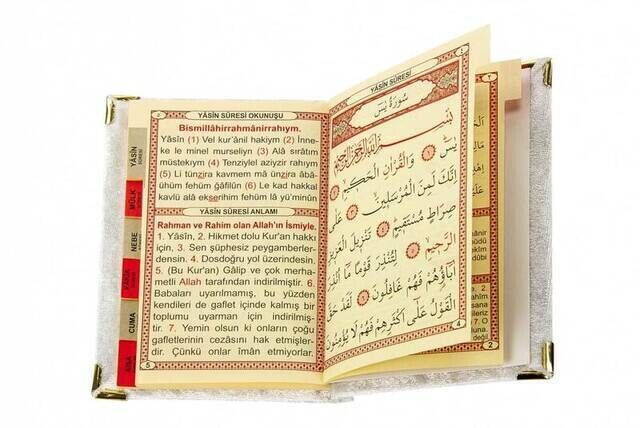 YÂSİN SÛRESİ OKUNUŞU
Bismillâhirrahmânirrahıym.
Yâsîn (1) Vel kur'ânil hakiym (2) İnne-
ke le minel murseliyn (3) Alâ sırâtım
müstekıym (4) Tenziylel aziyzir rahıym
(5) Li tünzira kavmem mâ ünzira âbâ-
ühüm fehüm ğâfilûn (6) Le kad hakkal
kavlü alâ ekserihim fehüm lâ yü'minûn
YÂSİN SÛRESİ ANLAMI
Rahman ve Rahim olan Allah'ın İsmiyle.
1. Yâsîn, 2. Hikmet dolu Kur'an hakkı
için, 3. Sen şüphesiz peygamberler-
densin. 4. Dosdoğru yol üzerindesin.
5. (Bu Kur'an) Gâlip ve çok merha-
metli Allah tarafından indirilmiştir. 6.
Babaları uyarılmamış, bu yüzden
kendileri de gaflet içinde kalmış bir
toplumu uyarman için indirilmiş-
tir. 7. Yemin olsun ki onların çoğu
gafletlerinin cezasını hak etmişler-
dir. Çünkü onlar îman etmiyorlar.
5
YÂSİN
MÜLK
NEBE
CUMA
YÂSİN SÛRESİ
سُورَةُ يٰسٓ
بِسْمِ اللّٰهِ الرَّحْمٰنِ الرَّحِيمِ
يٰسٓ ﴿١﴾ وَالْقُرْاٰنِ الْحَكِيمِ ﴿٢﴾
اِنَّكَ لَمِنَ الْمُرْسَلِينَ ﴿٣﴾ عَلٰى
صِرَاطٍ مُسْتَقِيمٍ ﴿٤﴾ تَنْزِيلَ الْعَزِيزِ
الرَّحِيمِ ﴿٥﴾ لِتُنْذِرَ قَوْمًا مَا اُنْذِرَ
اٰبَاؤُهُمْ فَهُمْ غَافِلُونَ ﴿٦﴾ لَقَدْ حَقَّ
الْقَوْلُ عَلٰى اَكْثَرِهِمْ فَهُمْ لَا يُؤْمِنُونَ
4
2